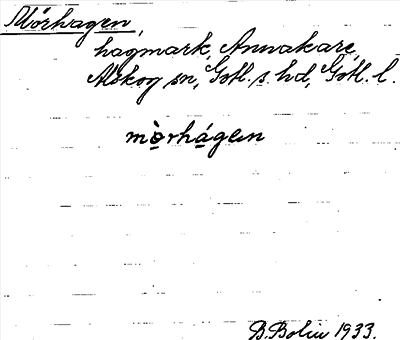 Mörhagen,
hagmark, Annakare,
Alskog sn, Gotl. s. hd, Gotl. l.
mo̤̊̀rhá̤gen
B. Bolin 1933.